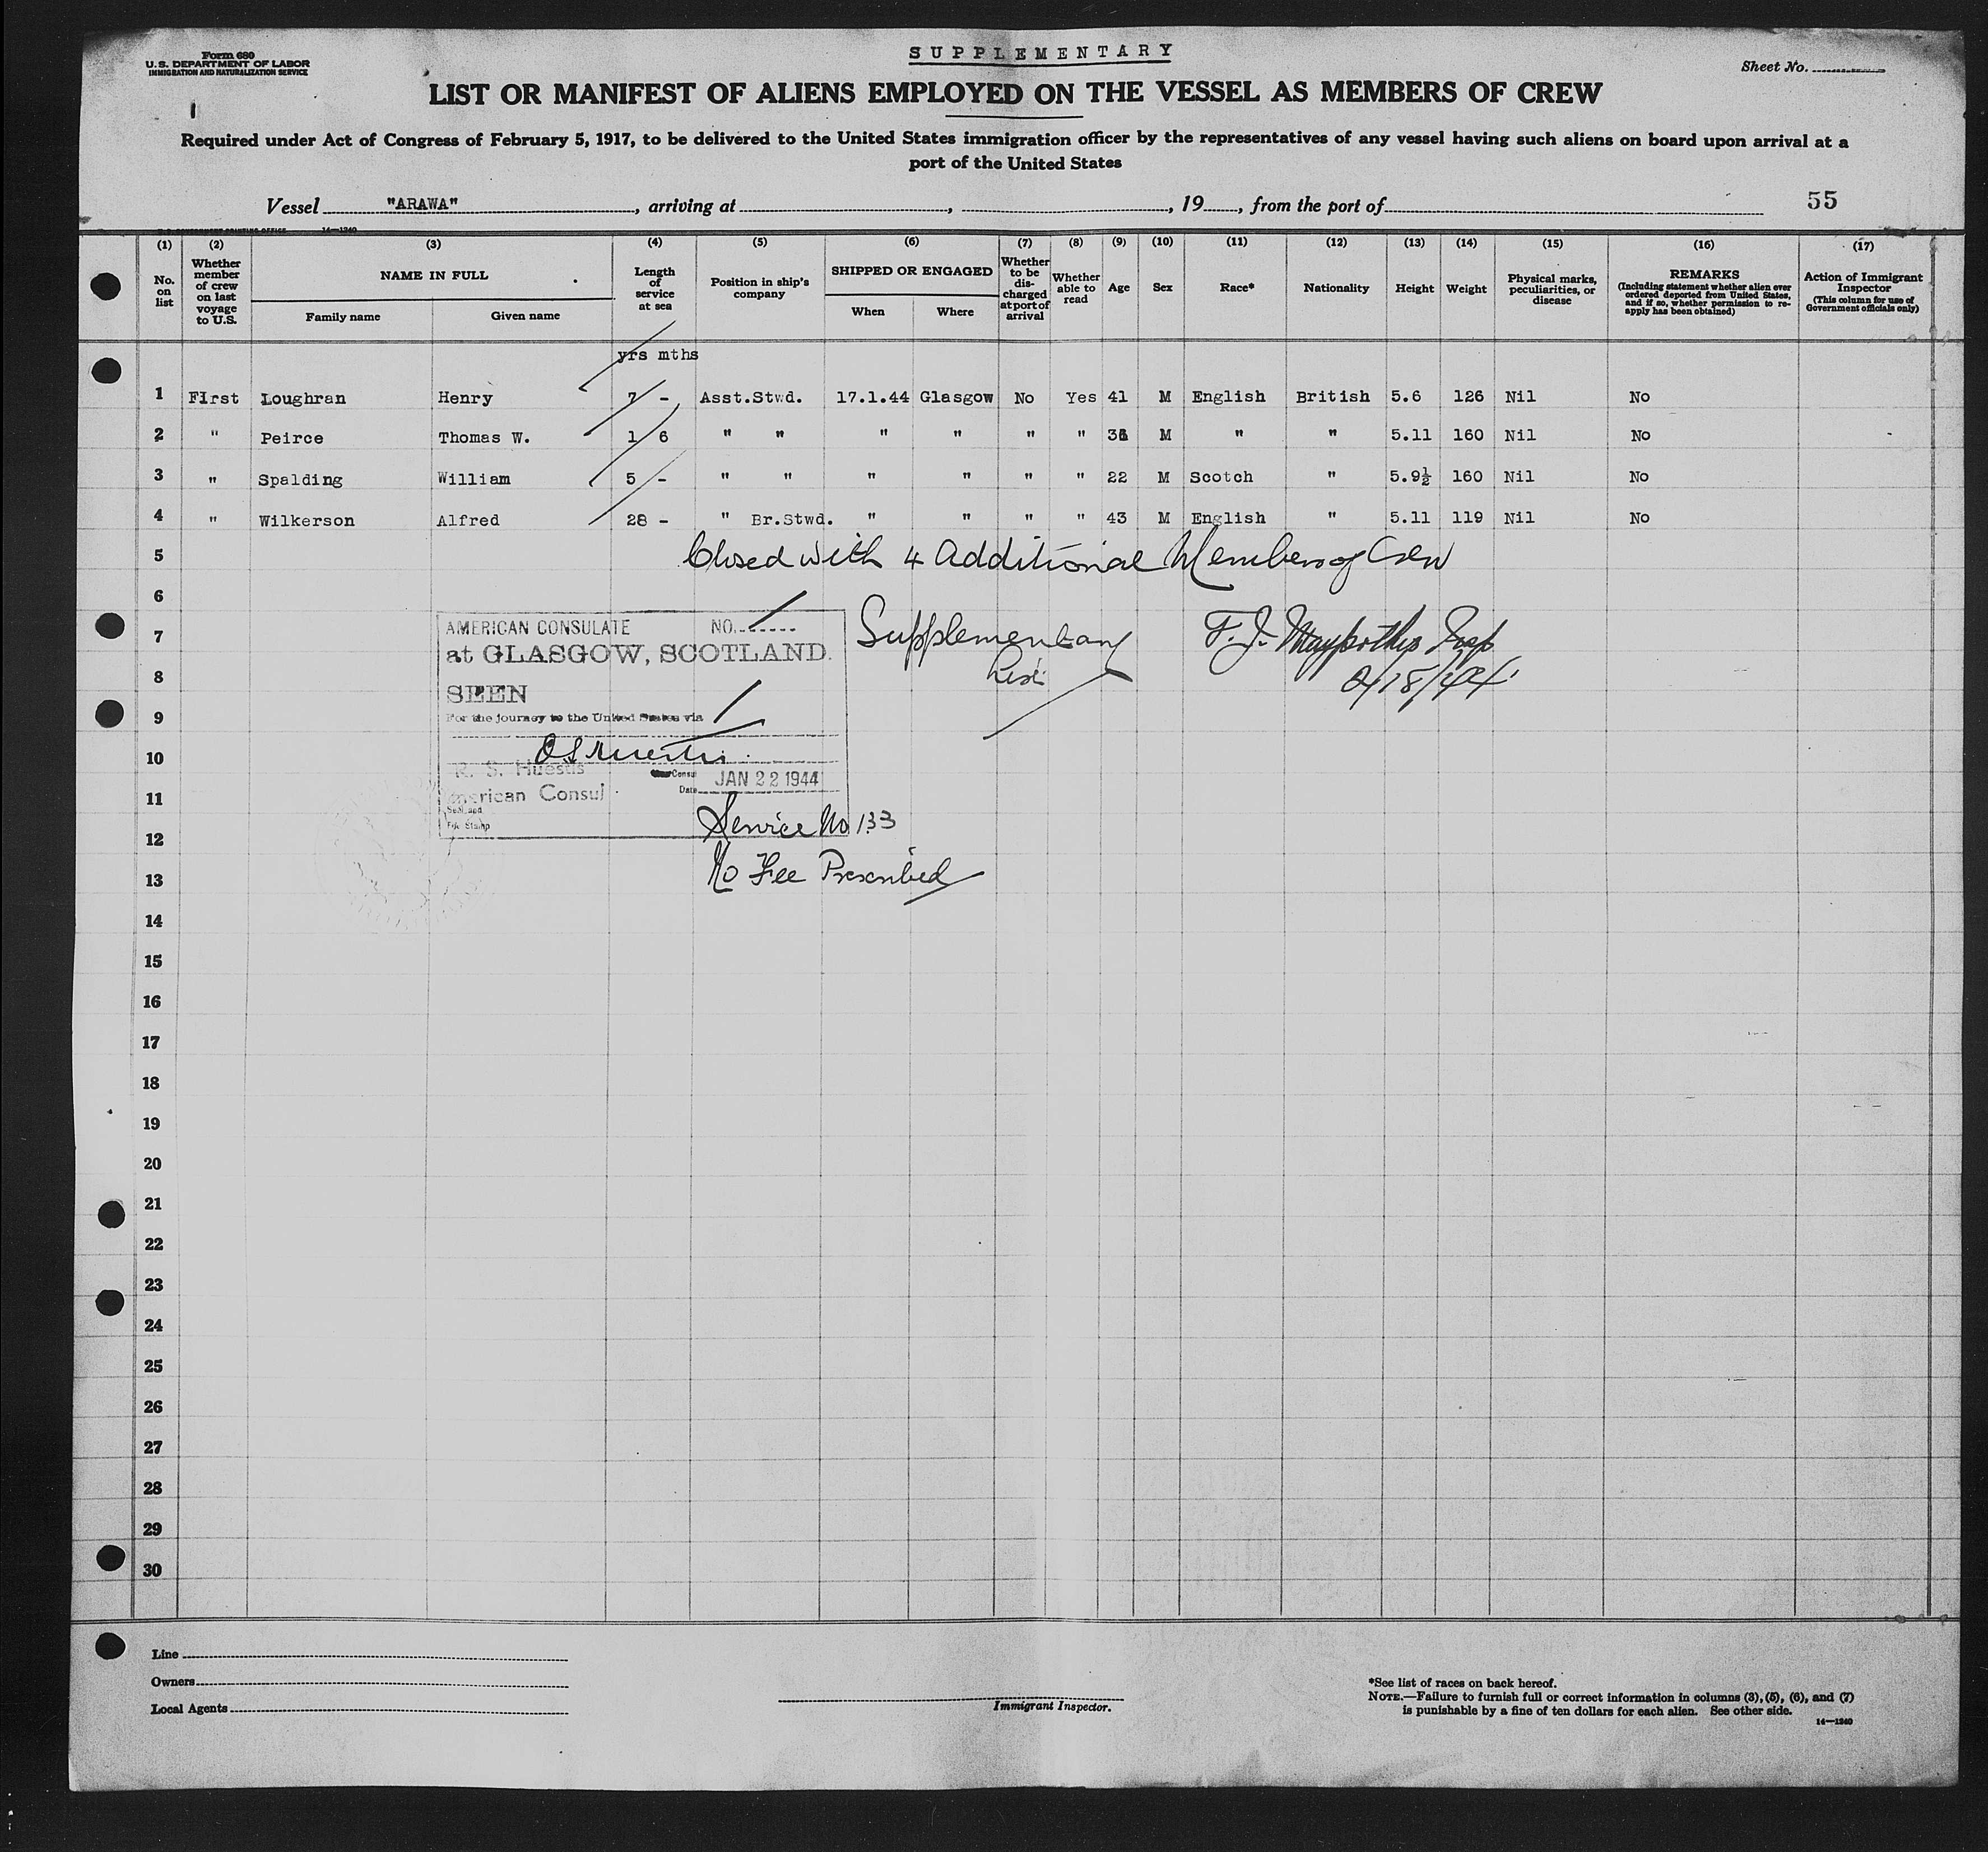 Form 680
U.S. DEPARTMENT OF LABOR
IMMIGRATION AND NATURALIZATION SERVICE
SUPPLEMENTARY
Sheet No.
LIST OR MANIFEST OF ALIENS EMPLOYED ON THE VESSEL AS MEMBERS OF CREW
Required under Act of Congress of February 5, 1917, to be delivered to the United States immigration officer by the representatives of any vessel having such aliens on board upon arrival at a
port of the United States
Vessel "ARAWA", arriving at , , 19 , from the port of 55
14—1240
(1) (2) (3) (4) (5) (6) (7) (8) (9) (10) (11) (12) (13) (14) (15) (16) (17)
No. on list
Whether member of crew on last voyage to U.S.
NAME IN FULL
Family name
Given name
Length of service at sea
Position in ship's company
SHIPPED OR ENGAGED
When
Where
Whether to be dis-charged at port of arrival
Whether able to read
Age
Sex
Race*
Nationality
Height
Weight
Physical marks, peculiarities, or disease
REMARKS
(Including statement whether alien ever ordered deported from United States, and if so, whether permission to re-apply has been obtained)
Action of Immigrant Inspector
(This column for use of Government officials only)
yrs mths
1 FIrst Loughran Henry 7 - Asst.Stwd. 17.1.44 Glasgow No Yes 41 M English British 5.6 126 Nil No
2 " Peirce Thomas W. 1 6 " " " " " " M " " 5.11 160 Nil No
3 " Spalding William 5 - " " " " " " 22 M Scotch " 5.9½ 160 Nil No
4 " Wilkerson Alfred 28 - " Br.Stwd. " " " " 43 M English " 5.11 119 Nil No
5 Closed with 4 Additional Members of Crew
6
7 Supplementary
8 List
F. J. Insp
2/18/44
AMERICAN CONSULATE NO.
at GLASGOW, SCOTLAND.
SEEN
For the journey to the United States via
R. S. Huestis
American Consul
Consul
Date JAN 22 1944
Seal and
Fee Stamp
Service No 133
No Fee Prescribed
9
10
11
12
13
14
15
16
17
18
19
20
21
22
23
24
25
26
27
28
29
30
Line
Owners
Local Agents
Immigrant Inspector.
*See list of races on back hereof.
NOTE.—Failure to furnish full or correct information in columns (3), (5), (6), and (7)
is punishable by a fine of ten dollars for each alien. See other side.
14—1240